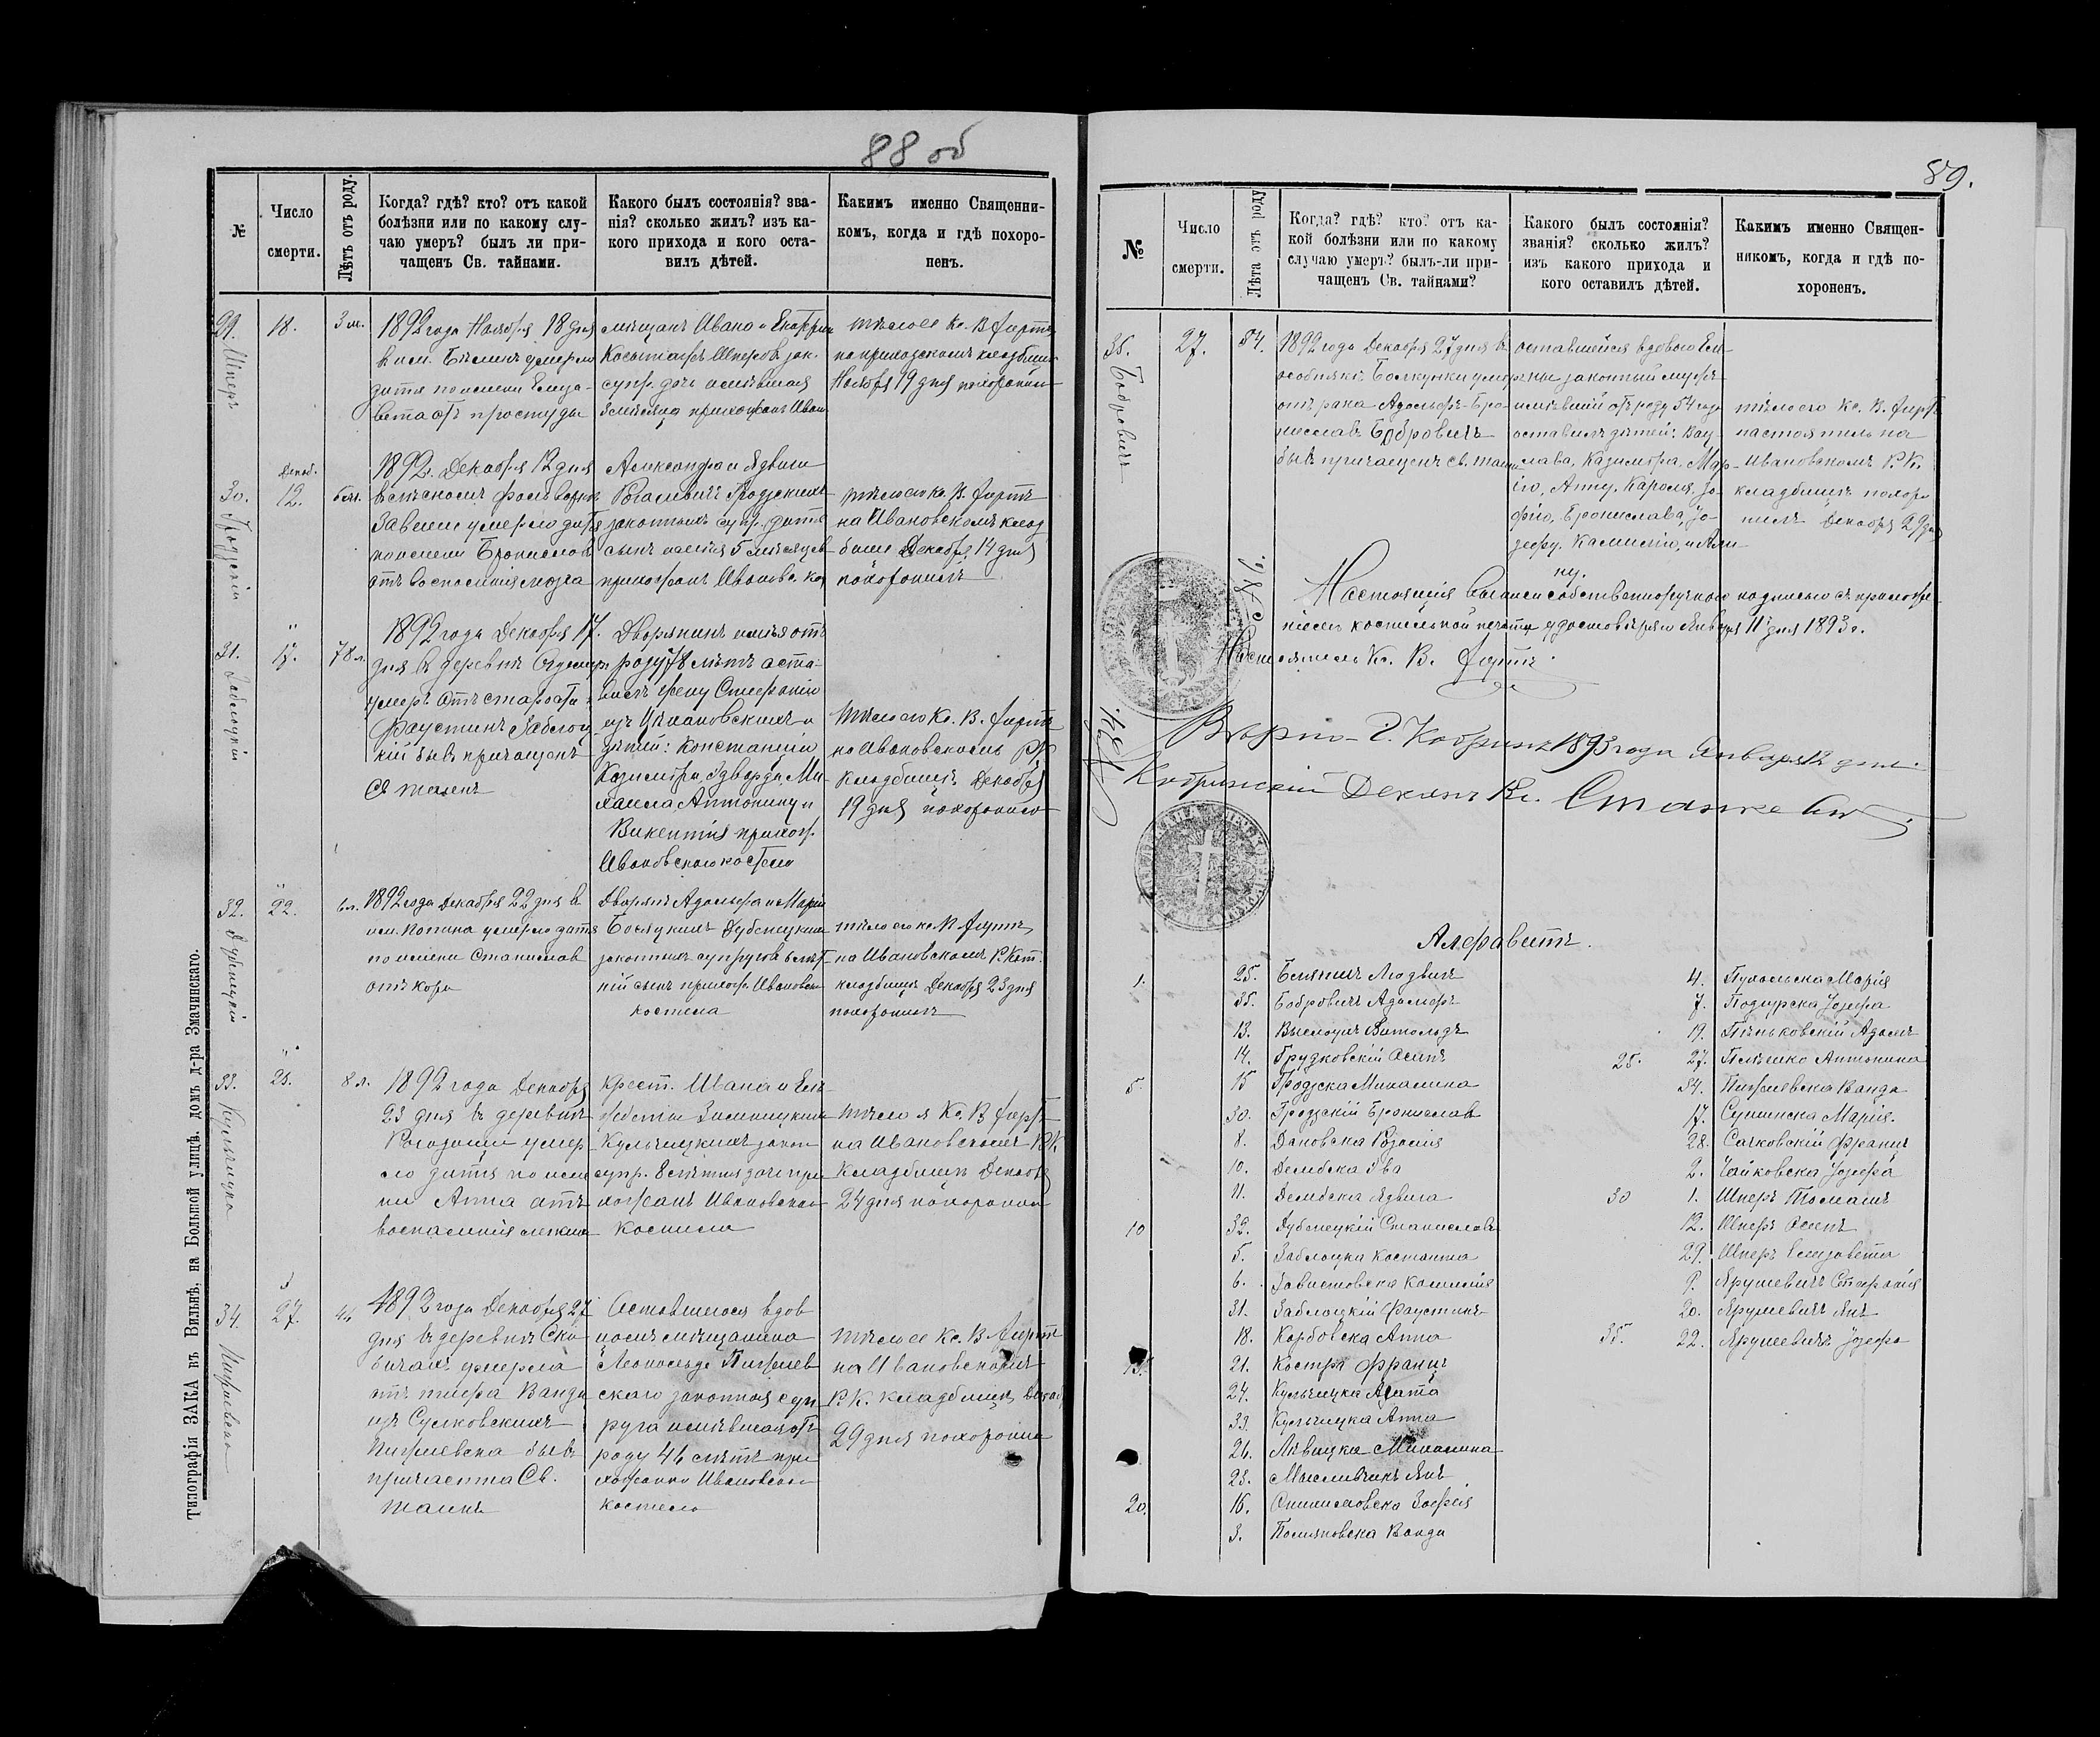 88 об
№
Число
смерти.
Лѣтъ отъ роду.
Когда? гдѣ? кто? отъ какой
болѣзни или по какому слу-
чаю умеръ? былъ ли при-
чащенъ Св. тайнами.
Какого былъ состоянія? зва-
нія? сколько жилъ? изъ ка-
кого прихода и кого оста-
вилъ дѣтей.
Какимъ именно Священни-
комъ, когда и гдѣ похоро-
ненъ.
29. Шперъ
18.
3 м.
1892 года Ноября 18 дня
в им. умерло
дитя по имени Елиза-
вета отъ простуды
мещанъ Ивана и
Шперов зак.
супр. дочь имевшая
3 месяца прихожанъ Иван
тело ее Кс. В. Фиртъ
на приходскомъ кладбище
Ноября 19 дня похоронилъ
30. Гродзскій
Декаб.
12.
5 м.
1892 г. Декабря 12 дня
в фольварке
Завелли умерло дитя
по имени Брониславъ
отъ воспаленія мозга
Александра и Ядвиги
Гродзскихъ
законныхъ супр. дитя
сынъ имея 5 месяцев
прихожанъ Ивановс. кос
тело его кс. В. Фиртъ
на Ивановскомъ клад
бище Декабря 14 дня
похоронилъ
31. Заблоцкій
"
17.
78 л.
1892 года Декабря 17.
дня в деревне
умеръ отъ старости
Фаустинъ Заблоц-
кій былъ причащенъ
Св. таинъ
Дворянинъ имея отъ
роду 78 летъ оста-
вилъ жену Стефанію
изъ и
детей: Констанцію
Казимира, Эдварда, Ми-
хаила, Антонину и
Викентія прихож.
Ивановскаго костела
тело его Кс. В. Фиртъ
на Ивановскомъ Р.К.
кладбище Декабря
19 дня похоронилъ
32. Дубенецкій
"
22.
6 л.
1892 года Декабря 22 дня в
им. Попина умерло дитя
по имени Станиславъ
отъ кори
Дворянъ Адольфа и Маріи
Дубенецкихъ
законныхъ супругов 6 лет-
ній сынъ прихож. Ивановск
костела
тело его кс. В. Фиртъ
на Ивановскомъ Р. Кат.
кладбище Декабря 23 дня
похоронилъ
33. Кульчицка
"
23.
8 л.
1892 года Декабря
23 дня въ деревне
умер-
ло дитя по име
ни Анна отъ
воспаленія легкихъ
Крест. Ивана и Ели-
Кульчицкихъ закон
супр. 8 летняя дочь при
хожанъ Ивановскаго
костела
тело я Кс. В. Фиртъ
на Ивановскомъ Р.К.
кладбище Декабря
24 дня похоронилъ
34. Пижевска
27.
46
1892 года Декабря 27
дня въ деревне Ско
бичахъ умерла
отъ тифа Ванда
изъ Сулковскихъ
Пижевска бывъ
причастна Св.
таинъ
Оставшегося вдов
цомъ мещанина
Леопольда Пижев
скаго законная суп
руга имевшая отъ
роду 46 летъ при
хожанка Ивановскаго
костела
тело ее Кс. В. Фиртъ
на Ивановскомъ
Р.К. кладбище Декаб
29 дня похоронилъ
типографія ЗАКА въ Вильнѣ, на Большой улицѣ, домъ д-ра Змачинскаго.
89.
№
Число
смерти.
Лѣта отъ роду
Когда? гдѣ? кто? отъ ка-
кой болѣзни или по какому
случаю умеръ? былъ-ли при-
чащенъ Св. тайнами?
Какого былъ состоянія?
званія? сколько жилъ?
изъ какого прихода и
кого оставилъ дѣтей.
Какимъ именно Священ-
никомъ, когда и гдѣ по-
хороненъ.
35. Бобровичъ
27.
54.
1892 года Декабря 27 дня в
умеръ
отъ рака Адольфъ-Бро-
ниславъ Бобровичъ
бывъ причащенъ св. таин
оставшейся вдовою Еле-
ны законный мужъ
имевший отъ роду 54 года
оставилъ детей: Вац-
лава, Казимира, Мар-
ію, Анну, Кароля, Зо-
фію, Бронислава, Іо-
зефу, Камиллію, и Али-
ну.
тело его Кс. В. Фиртъ
настоятель на
Ивановскомъ Р.К.
кладбище похоро
нилъ Декабря 29 дня
Настоящія записи собственноручною подписью съ приложе-
ніемъ костельной печати удостоверяю Января 11 дня 1893 г.
Настоятель Кс. В. Фиртъ
Верно - Г. Кобринъ 1893 года Января 12 дня
Кобринскій Деканъ Кс.
Алфавитъ.
1.
25. Людвигъ
35. Бобровичъ Адольфъ
13. Витольдъ
14. Грудковскій Осипъ
5.
15 Гродзска Михалина
30. Гродзскій Брониславъ
8. Дановска Розалія
10. Дембска Эва
11. Дембска Ядвига
10
32. Дубенецкій Станиславъ
5. Заблоцка Констанція
6. Завистовска Камиллія
31. Заблоцкій Фаустинъ
18. Корбовска Анна
15.
21. Костра Францъ
24. Кульчицка Агата
33. Кульчицка Анна
26. Левицка Михалина
23. Мысливчикъ Янъ
20.
16. Зофія
3. Поляновска Ванда
4. Марія
7. Подгурска Іозефа
19. Пеньковскій Адамъ
25.
27. Антонина
34. Пижевска Ванда
17. Марія.
28. Сачковскій Францъ
2. Чайковска Іозефа
30
1. Шперъ Томашъ
12. Шперъ Осипъ
29. Шперъ Елизавета
9. Ярушевичъ Стефанія
20. Ярушевичъ Янъ
35.
22. Ярушевичъ Іозефа